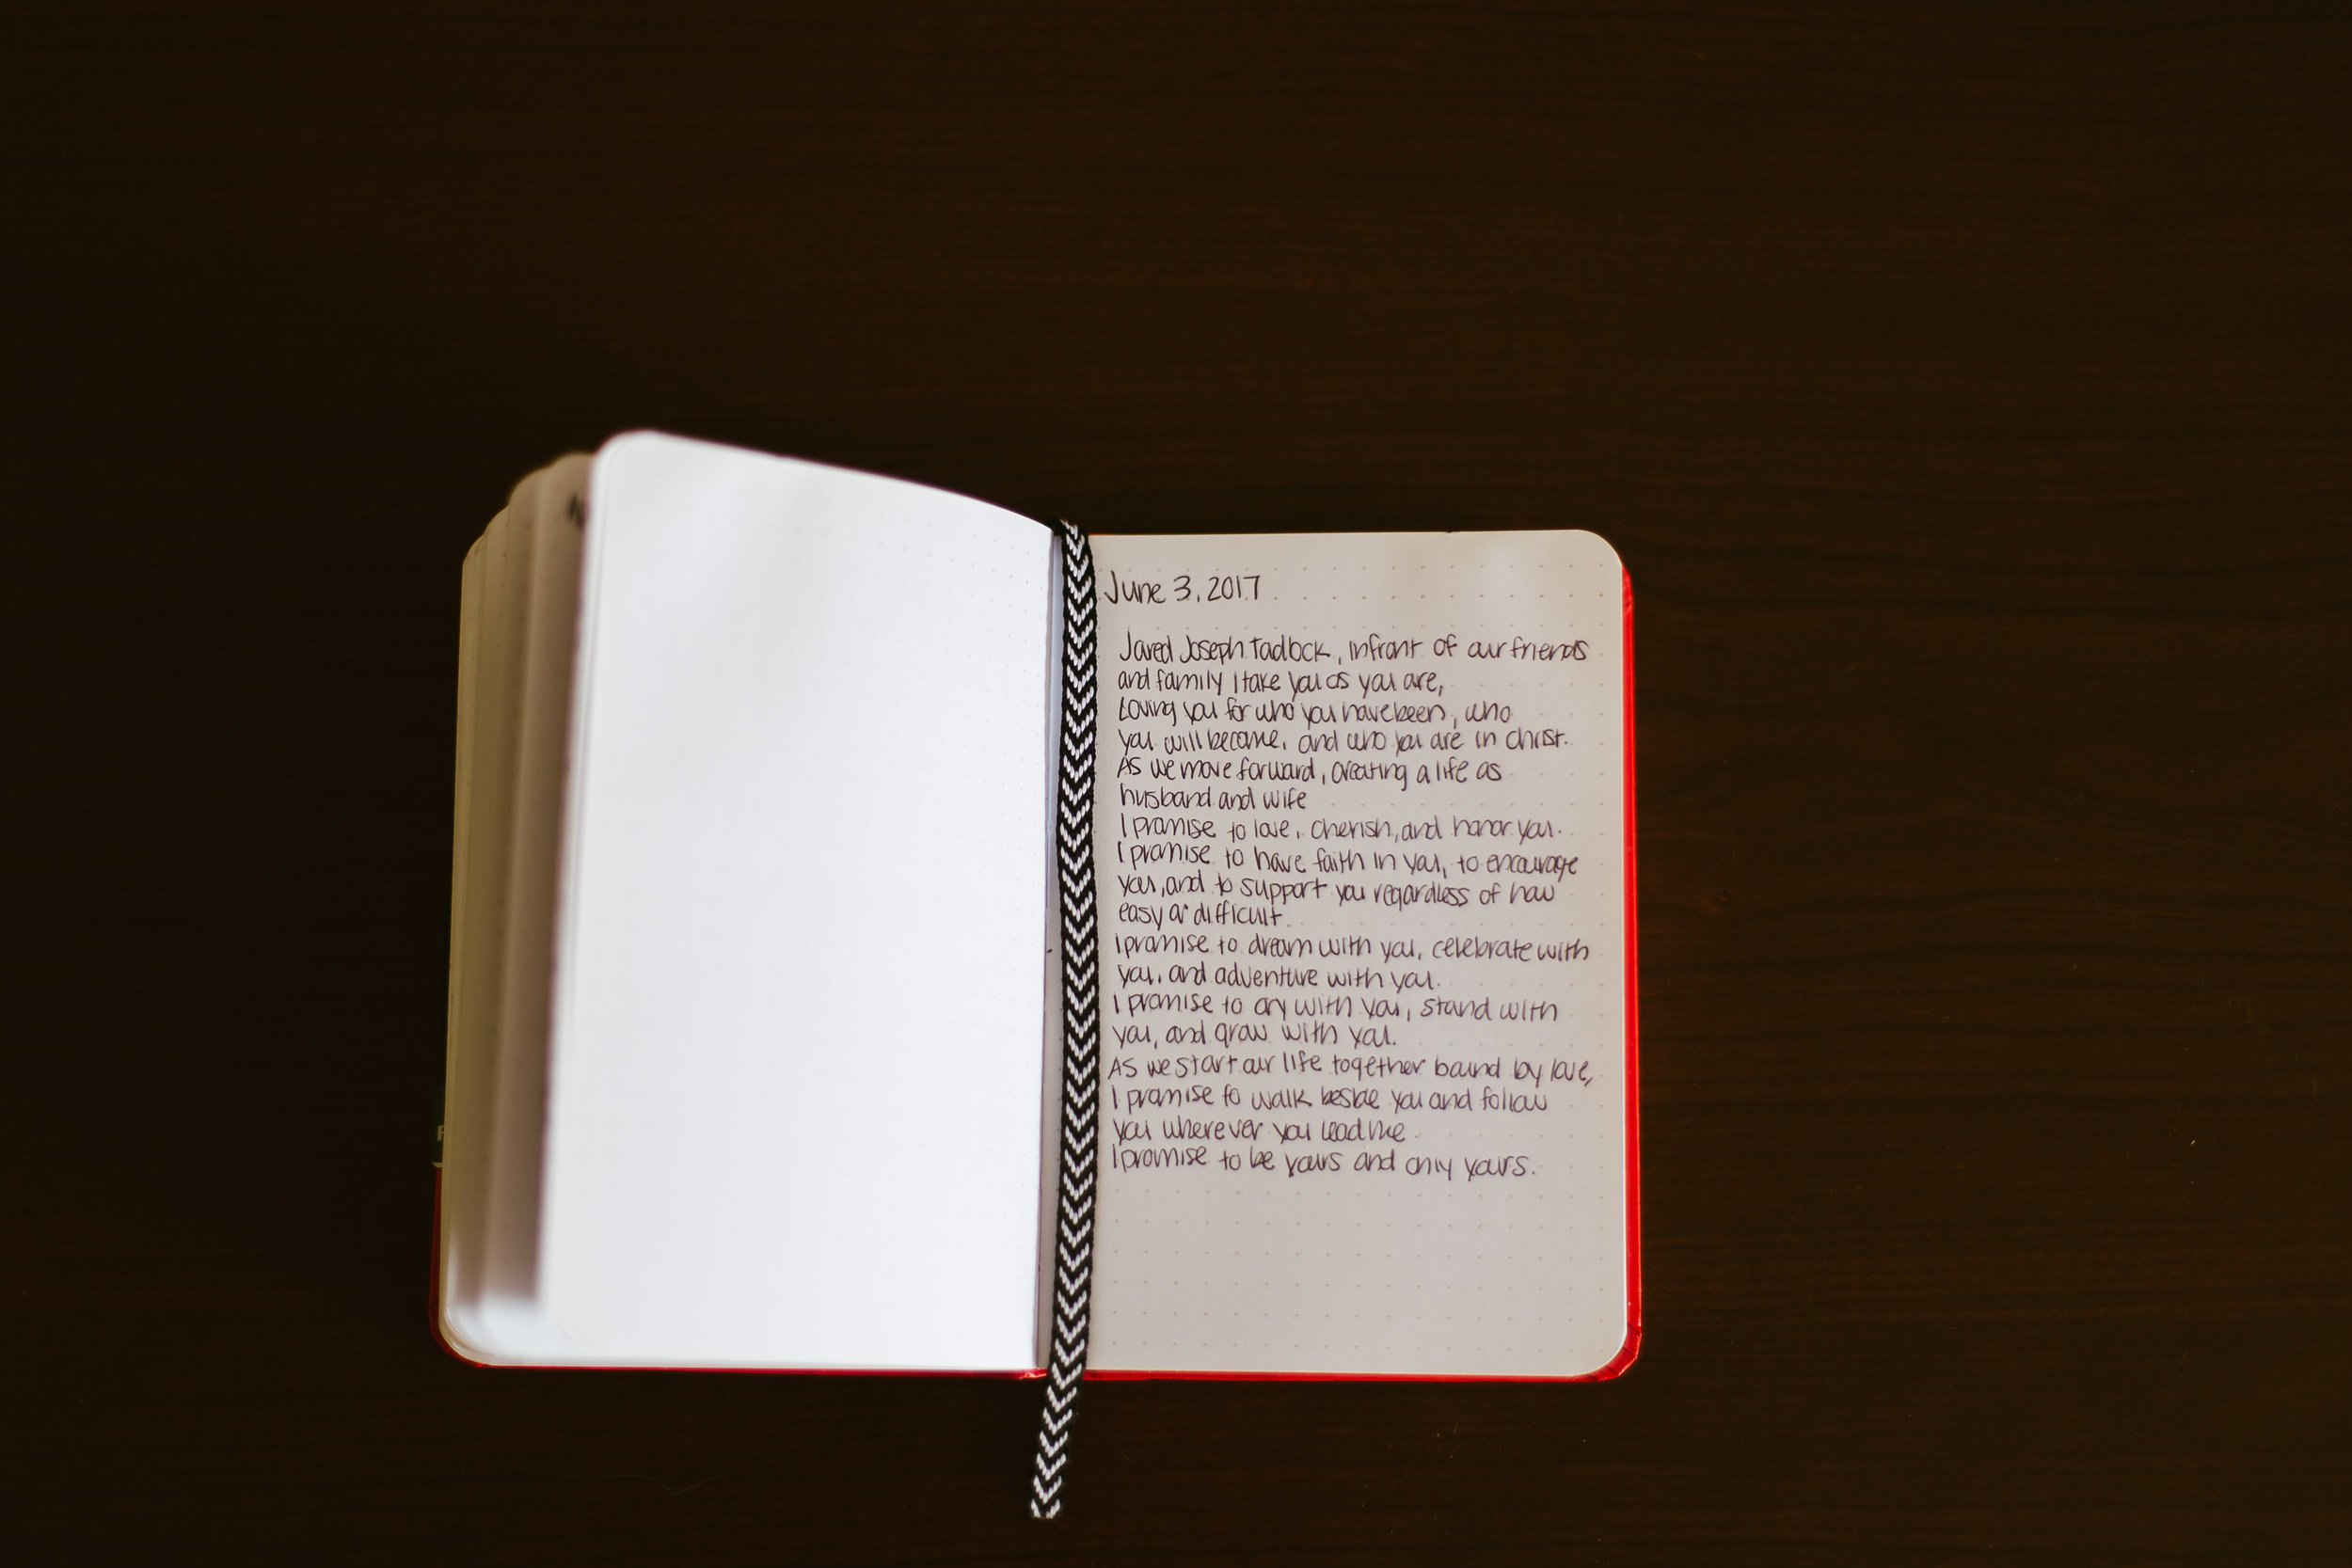 June 3, 2017
Jared Joseph Tadlock, infront of our friends
and family I take you as you are,
Loving you for who you have been, who
you will become, and who you are in Christ.
As we move forward, creating a life as
husband and wife
I promise to love, cherish, and honor you.
I promise to have faith in you, to encourage
you, and to support you regardless of how
easy or difficult.
I promise to dream with you, celebrate with
you, and adventure with you.
I promise to cry with you, stand with
you, and grow with you.
As we start our life together bound by love,
I promise to walk beside you and follow
you wherever you lead me
I promise to be yours and only yours.